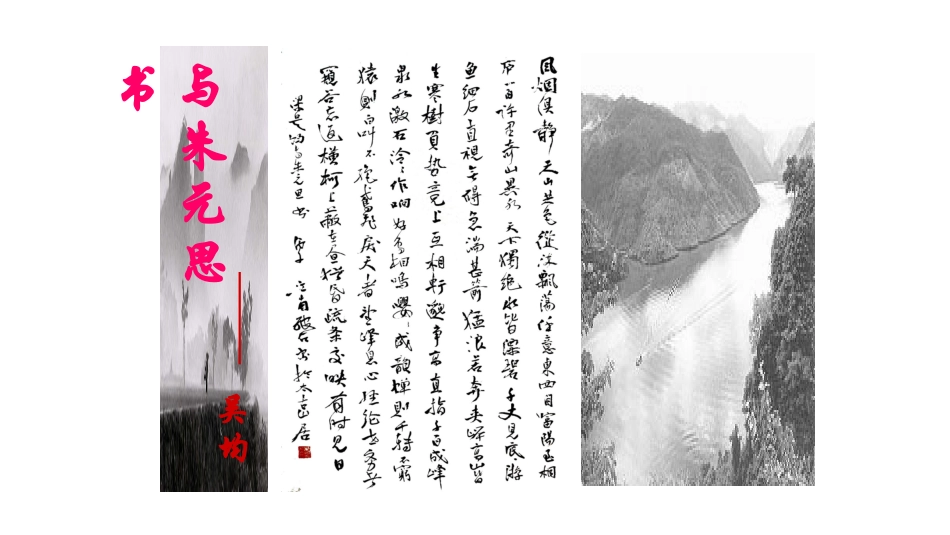 与朱元思
书
吴均
風烟俱靜天山共色從流飄蕩任意東西自富陽至桐
廬百许里奇山異水天下獨绝水皆縹碧千丈見底游
鱼细石直視无碍急湍甚箭猛浪若奔夹岸高山皆
生寒樹負势竞上互相轩邈争高直指千百成峰
泉水激石泠泠作响好鸟相鸣嘤嘤成韻蝉則千转不窮
猿則百叫不绝鸢飛戾天者望峰息心经纶世务者
窺谷忘返横柯上蔽在昼犹昏疏条交映有时见日
梁吴均与朱元思书